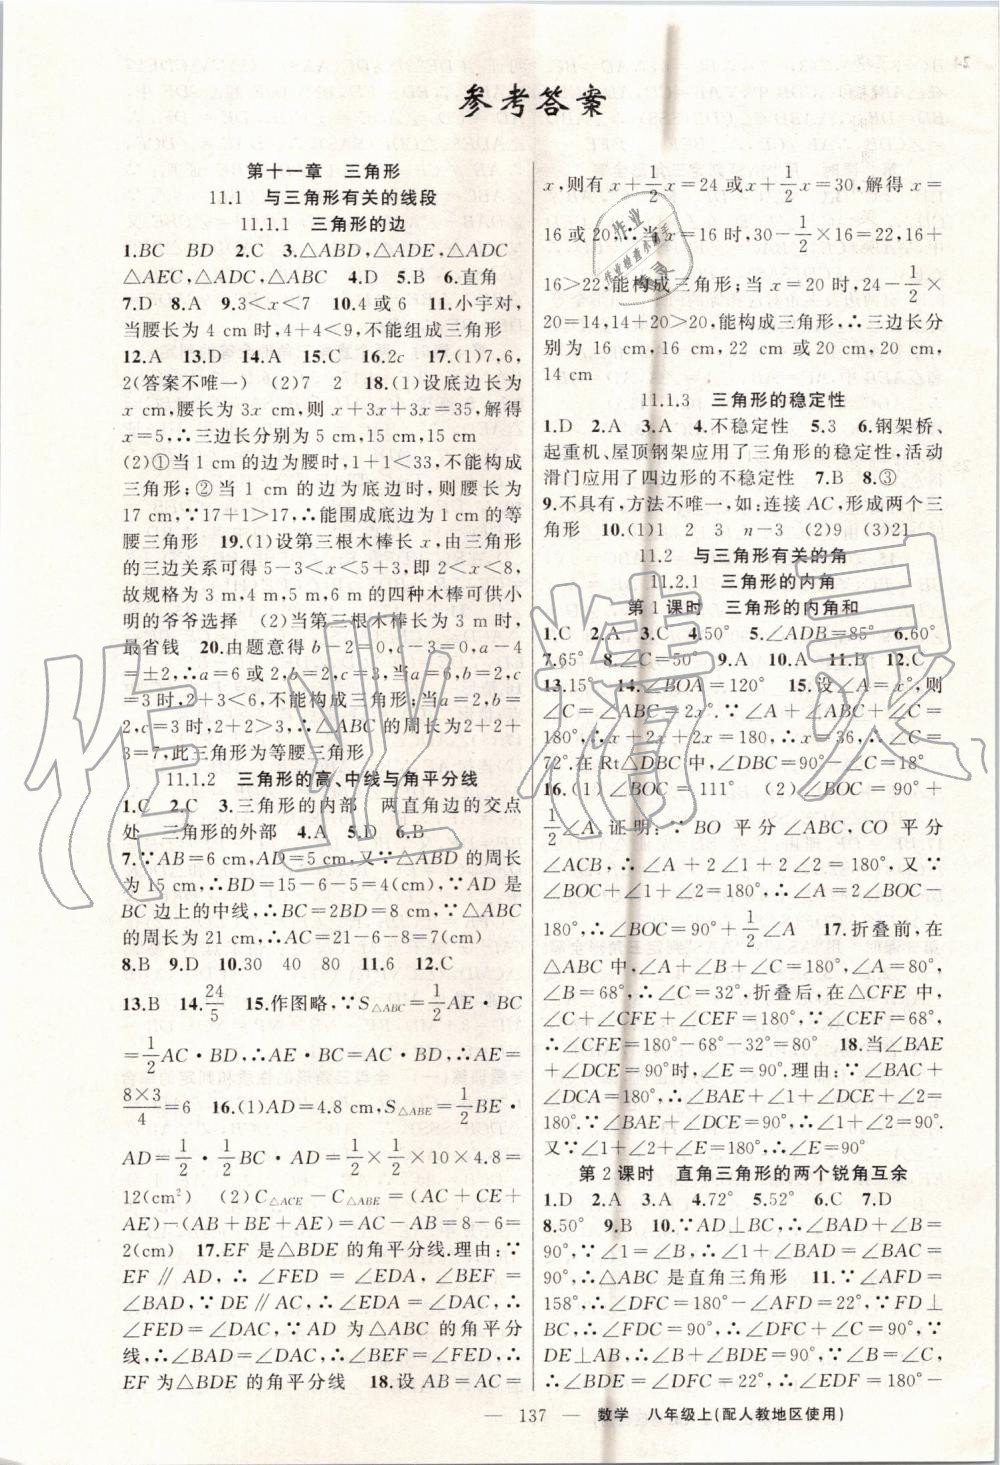 参考答案
第十一章　三角形
11.1　与三角形有关的线段
11.1.1　三角形的边
1.BC　BD　2.C　3.△ABD,△ADE,△ADC
△AEC,△ADC,△ABC　4.D　5.B　6.直角
7.D　8.A　9.3＜x＜7　10.4或6　11.小宇对,
当腰长为4 cm时,4+4＜9,不能组成三角形
12.A　13.D　14.A　15.C　16.2c　17.(1)7,6,
2(答案不唯一)　(2)7　2　18.(1)设底边长为
x cm,腰长为3x cm,则x+3x+3x=35,解得
x=5,∴三边长分别为5 cm,15 cm,15 cm
(2)①当1 cm为腰时,1+1＜33,不能构成
三角形;②当1 cm为底边时,则腰长为
17 cm,∵17+1＞17,∴能围成底边为1 cm的等
腰三角形　19.(1)设第三根木棒长x,由三角形
的三边关系可得5-3＜x＜5+3,即2＜x＜8,
故规格为3 m,4 m,5 m,6 m的四种木棒可供小
明的爷爷选择　(2)当第三根木棒长为3 m时,
最省钱　20.由题意得b-2=0,c-3=0,a-4
=±2,∴a=6或2,b=2,c=3,当a=6,b=2,
c=3时,2+3＜6,不能构成三角形;当a=2,b=
2,c=3时,2+2＞3,∴△ABC的周长为2+2+
3=7,此三角形为等腰三角形
11.1.2　三角形的高、中线与角平分线
1.C　2.C　3.三角形的内部　两直角边的交点
处　三角形的外部　4.A　5.D　6.B
7.∵AB=6 cm,AD=5 cm,又∵△ABD的周长
为15 cm,∴BD=15-6-5=4(cm),∵AD是
BC边上的中线,∴BC=2BD=8 cm,∵△ABC
的周长为21 cm,∴AC=21-6-8=7(cm)
8.B　9.D　10.30　40　80　11.6　12.C
13.B　14.24/5　15.作图略,∵S△ABC=1/2AE·BC
=1/2AC·BD,∴AE·BC=AC·BD,∴AE=
8×3/4=6　16.(1)AD=4.8 cm,S△ABE=1/2BE·
AD=1/2·1/2BC·AD=1/2×1/2×10×4.8=
12(cm²)　(2)C△ACE-C△ABE=(AC+CE+
AE)-(AB+BE+AE)=AC-AB=8-6=
2(cm)　17.EF是△BDE的角平分线.理由:∵
EF∥AD,∴∠FED=∠EDA,∠BEF=
∠BAD,∵DE∥AC,∴∠EDA=∠DAC,∴
∠FED=∠DAC,∵AD为△ABC的角平分
线,∴∠BAD=∠DAC,∴∠BEF=∠FED,∴
EF为△BDE的角平分线　18.设AB=AC=
x,则有x+1/2x=24或x+1/2x=30,解得x=
16或20,∴当x=16时,30-1/2×16=22,16+
16＞22,能构成三角形;当x=20时,24-1/2×
20=14,14+20＞20,能构成三角形,∴三边长分
别为16 cm,16 cm,22 cm或20 cm,20 cm,
14 cm
11.1.3　三角形的稳定性
1.D　2.A　3.A　4.不稳定性　5.3　6.钢架桥、
起重机、屋顶钢架应用了三角形的稳定性,活动
滑门应用了四边形的不稳定性　7.B　8.③
9.不具有,方法不唯一,如:连接AC,形成两个三
角形　10.(1)1　2　3　n-3　(2)9　(3)21
11.2　与三角形有关的角
11.2.1　三角形的内角
第1课时　三角形的内角和
1.C　2.A　3.C　4.50°　5.∠ADB=85°　6.60°
7.65°　8.∠C=50°　9.A　10.A　11.B　12.C
13.15°　14.∠BOA=120°　15.设∠A=x°,则
∠C=∠ABC=2x°.∵∠A+∠ABC+∠C=
180°,∴x+2x+2x=180,∴x=36,∴∠C=
72°.在Rt△DBC中,∠DBC=90°-∠C=18°
16.(1)∠BOC=111°　(2)∠BOC=90°+
1/2∠A.证明:∵BO平分∠ABC,CO平分
∠ACB,∴∠A+2∠1+2∠2=180°,又∵
∠BOC+∠1+∠2=180°,∴∠A=2∠BOC-
180°,∴∠BOC=90°+1/2∠A　17.折叠前,在
△ABC中,∠A+∠B+∠C=180°,∠A=80°,
∠B=68°,∴∠C=32°,折叠后,在△CFE中,
∠C+∠CFE+∠CEF=180°,∵∠CEF=68°,
∴∠CFE=180°-68°-32°=80°　18.当∠BAE
+∠DCE=90°时,∠E=90°.理由:∵∠BAC+
∠DCA=180°,∴∠BAE+∠1+∠DCE+∠2=
180°.∵∠BAE+∠DCE=90°,∴∠1+∠2=90°.
又∵∠1+∠2+∠E=180°,∴∠E=90°
第2课时　直角三角形的两个锐角互余
1.D　2.A　3.A　4.72°　5.52°　6.C　7.D
8.50°　9.B　10.∵AD⊥BC,∴∠BAD+∠B=
90°,∵∠1=∠B,∴∠1+∠BAD=∠BAC=
90°,∴△ABC是直角三角形　11.∵∠AFD=
158°,∴∠DFC=180°-∠AFD=22°,∵FD⊥
BC,∴∠FDC=90°,∴∠DFC+∠C=90°,∵
DE⊥AB,∴∠BDE+∠B=90°,∵∠B=∠C,
∴∠BDE=∠DFC=22°,∴∠EDF=90°-
— 137 —　数学　八年级上(配人教地区使用)
作业精灵